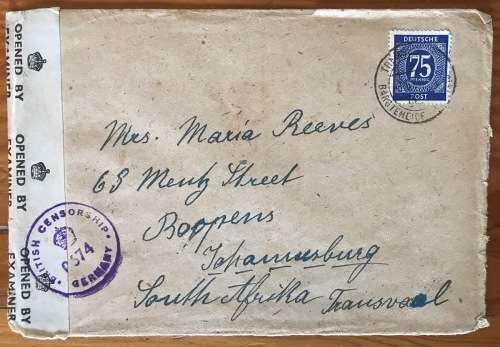 OPENED BY
EXAMINER
OPENED BY
EXAMINER
OPENED BY
EXAMINER
DEUTSCHE
75
PFENNIG
POST
BARGTEHEIDE
Mrs. Maria Reeves
63 Mentz Street
Booysens
Johannesburg
South Afrika Transvaal
BRITISH CENSORSHIP
GERMANY